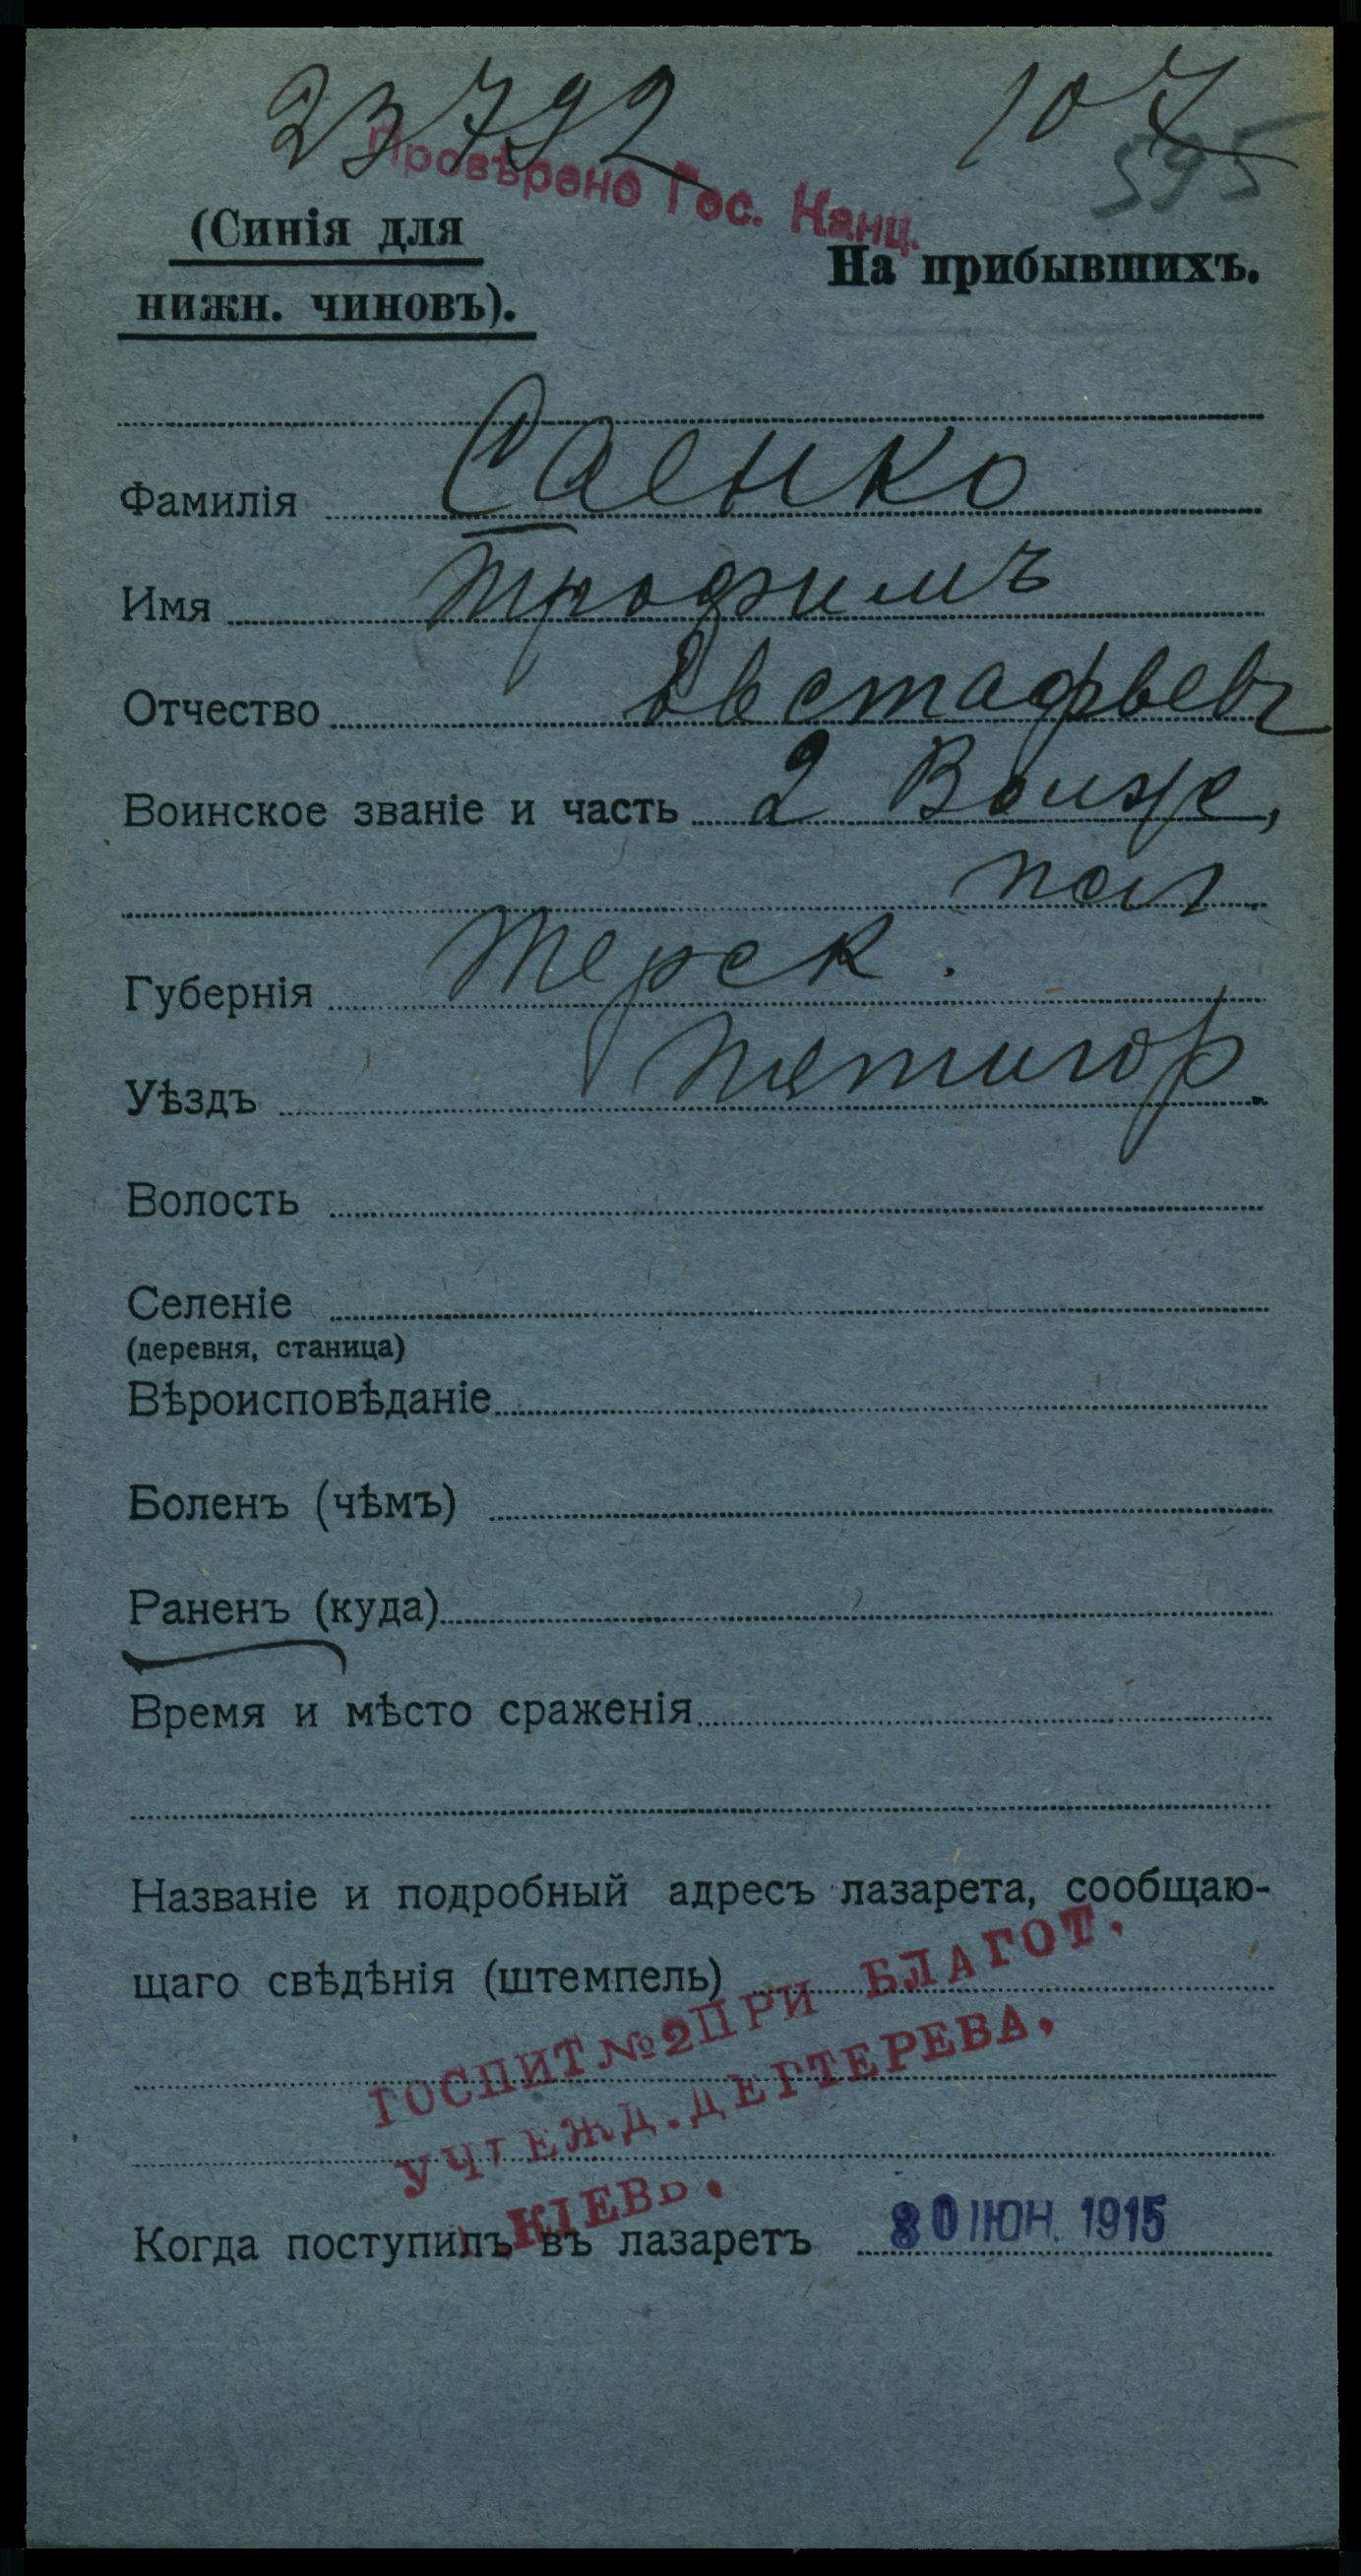 23792 107
595
Провѣрено Гос. Канц.
(Синія для
нижн. чиновъ).
На прибывшихъ.
Фамилія Саенко
Имя Трофимъ
Отчество Евстафьевъ
Воинское званіе и часть 2 Волж,
пол.
Губернія Терск.
Уѣздъ Пятигор.
Волость
Селеніе
(деревня, станица)
Вѣроисповѣданіе
Боленъ (чѣмъ)
Раненъ (куда)
Время и мѣсто сраженія
Названіе и подробный адресъ лазарета, сообщаю-
щаго свѣдѣнія (штемпель)
ГОСПИТ №2 ПРИ БЛАГОТ.
УЧГЕЖД. ДЕГТЕРЕВА.
КІЕВЬ.
Когда поступилъ въ лазаретъ 30 ІЮН. 1915